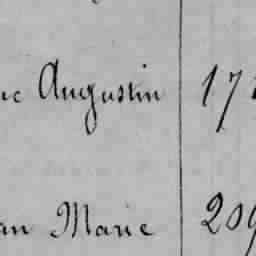 uc Augustin 17
an Marie 209